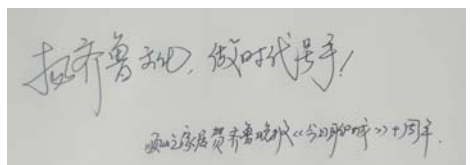 扬齐鲁文化,做时代号手!
顺山之家居贺齐鲁晚报《今日聊城》十周年.